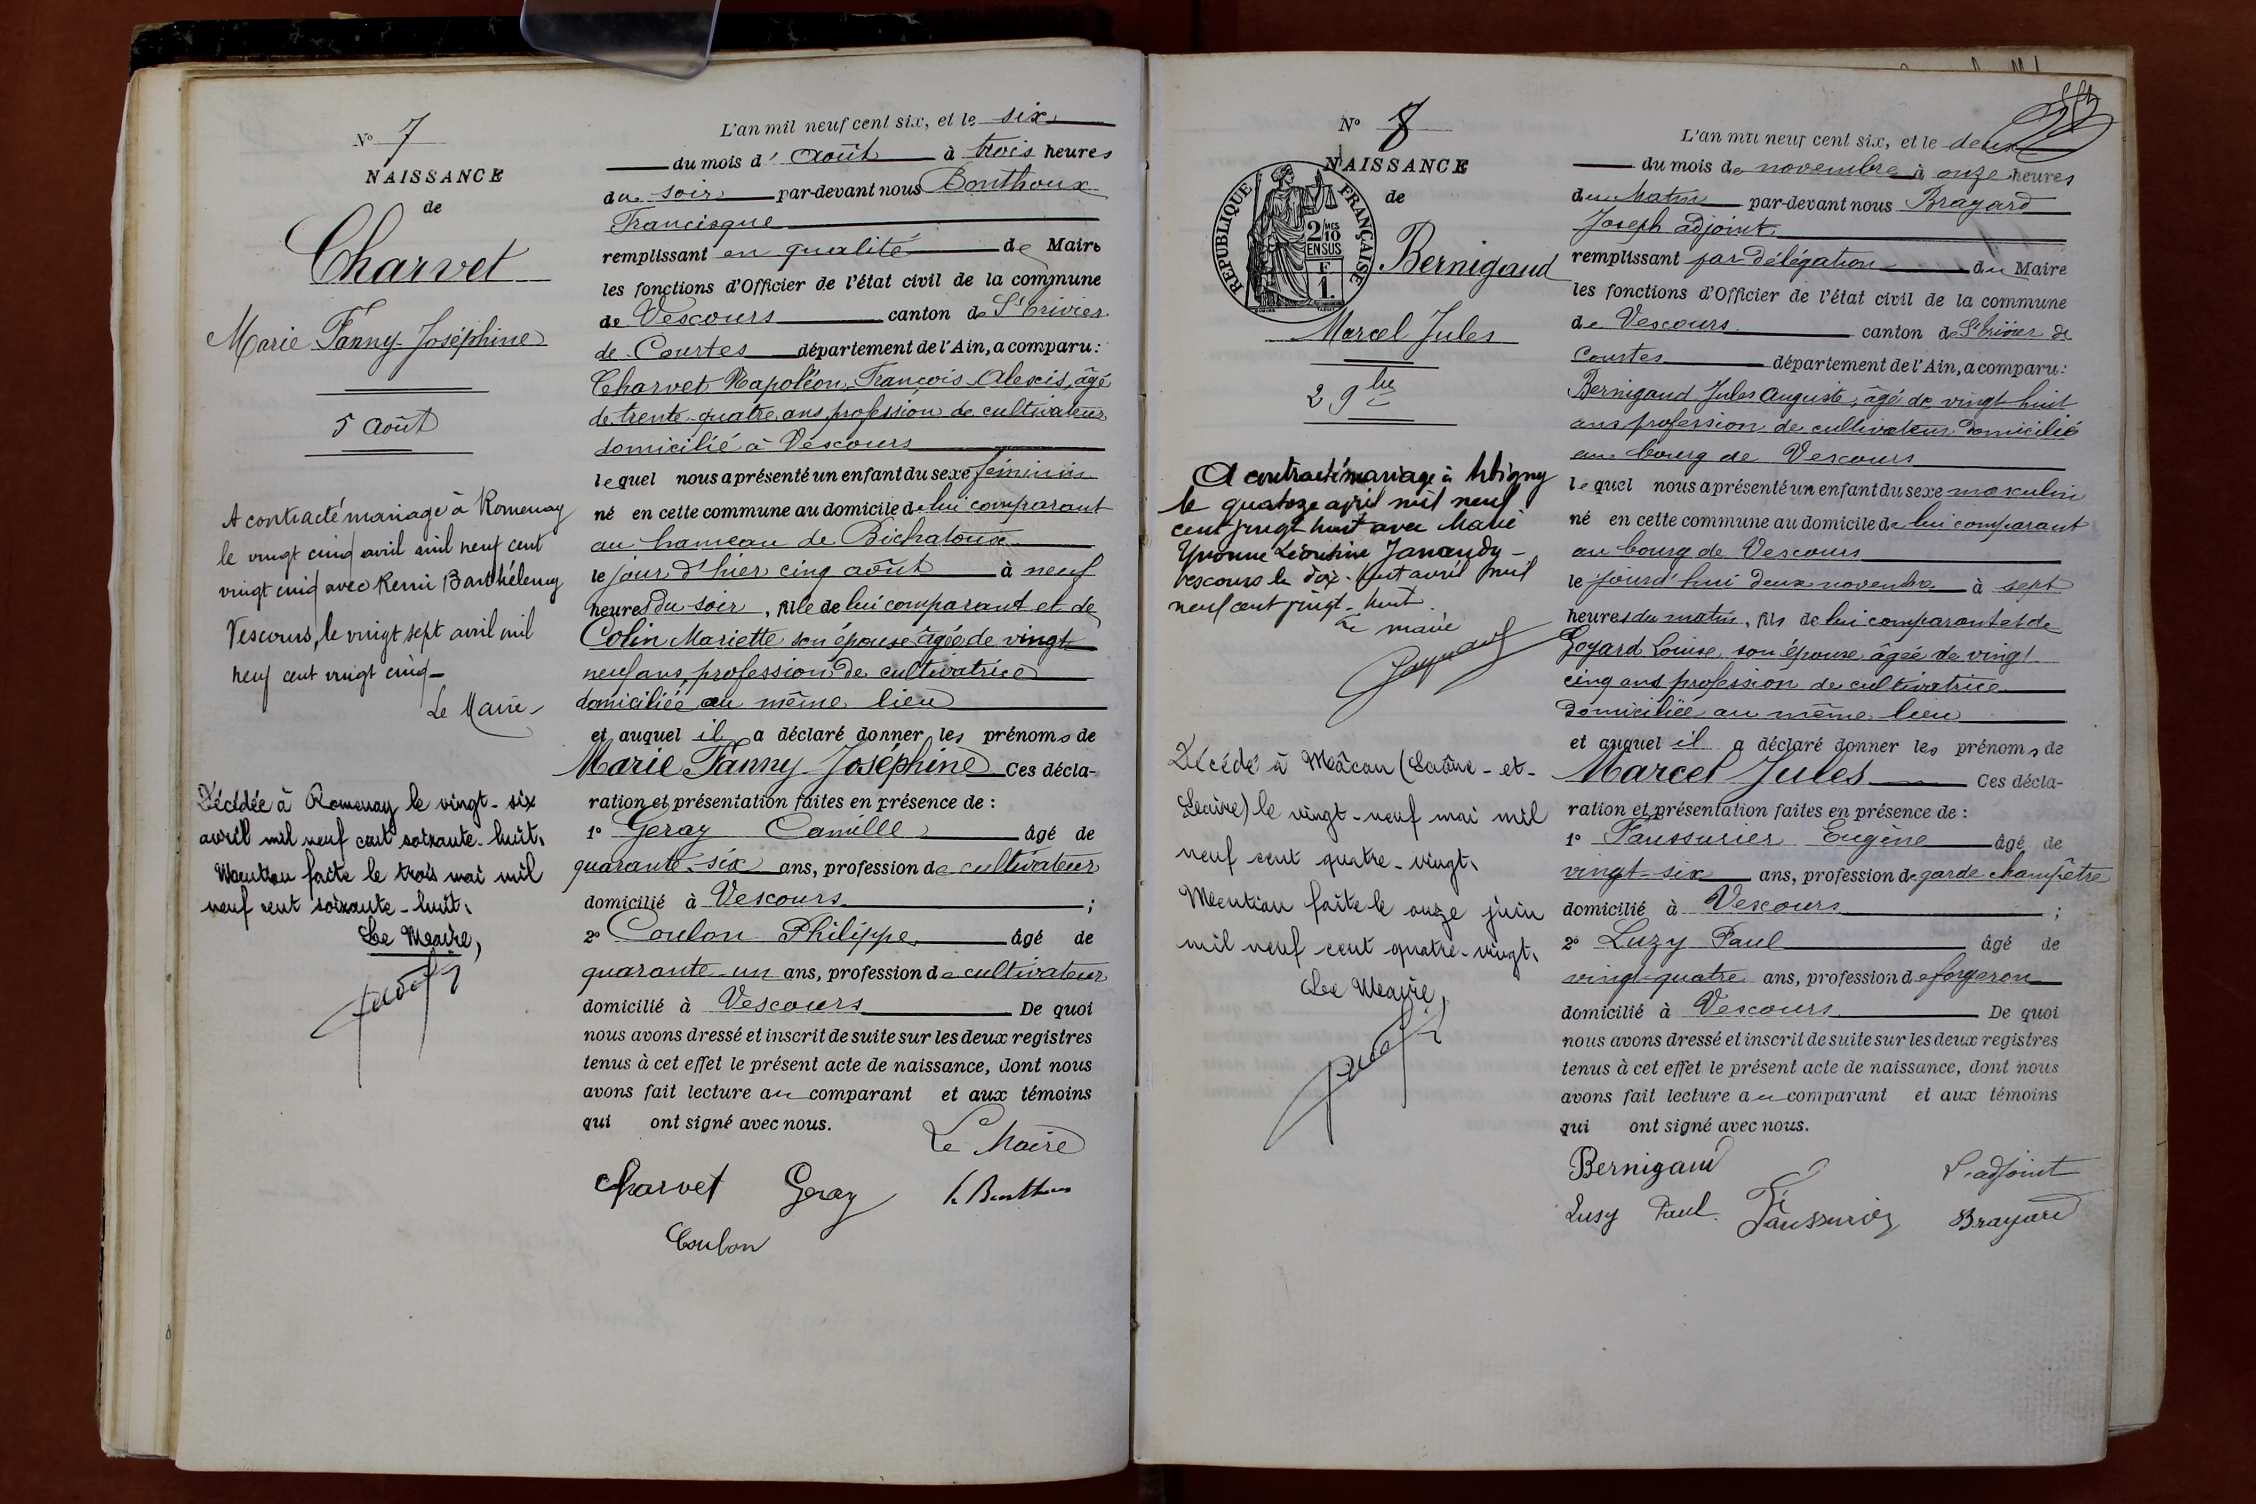 N° 7
NAISSANCE
de
Charvet
Marie Fanny Joséphine
5 Août
A contracté mariage à Romenay
le vingt cinq avril mil neuf cent
vingt cinq avec Remi Barthélemy
Vescours, le vingt sept avril mil
neuf cent vingt cinq
Le Maire
Décédée à Romenay le vingt-six
avril mil neuf cent soixante-huit.
Mention faite le trois mai mil
neuf cent soixante-huit.
Le Maire,
L'an mil neuf cent six, et le six
du mois d'août à trois heures
du soir par-devant nous Bonthoux
Francisque
remplissant en qualité de Maire
les fonctions d'Officier de l'état civil de la commune
de Vescours canton de St Trivier
de Courtes département de l'Ain, a comparu:
Charvet Napoléon François Alexis, âgé
de trente-quatre ans profession de cultivateur
domicilié à Vescours
lequel nous a présenté un enfant du sexe féminin
né en cette commune au domicile de lui comparant
au hameau de Bichatoux
le jour d'hier cinq août à neuf
heures du soir, fille de lui comparant et de
Colin Mariette son épouse âgée de vingt
neuf ans, profession de cultivatrice
domiciliée au même lieu
et auquel il a déclaré donner les prénoms de
Marie Fanny Joséphine Ces décla-
ration et présentation faites en présence de :
1° Geray Camille âgé de
quarante-six ans, profession de cultivateur
domicilié à Vescours ;
2° Coulon Philippe âgé de
quarante-un ans, profession de cultivateur
domicilié à Vescours De quoi
nous avons dressé et inscrit de suite sur les deux registres
tenus à cet effet le présent acte de naissance, dont nous
avons fait lecture au comparant et aux témoins
qui ont signé avec nous.
Le Maire
Charvet Geray
Coulon
N° 8
NAISSANCE
de
REPUBLIQUE FRANÇAISE
2 MES 10
EN SUS
F 1
Bernigaud
Marcel Jules
2 9bre
A contracté mariage à Arbigny
le quatorze avril mil neuf
cent vingt huit avec Marie
Yvonne Léontine Janaudy
Vescours le dix-huit avril mil
neuf cent vingt-huit
Le maire
Décédé à Mâcon (Saône-et-
Loire) le vingt-neuf mai mil
neuf cent quatre-vingt.
Mention faite le onze juin
mil neuf cent quatre-vingt.
Le Maire,
L'an mil neuf cent six, et le deux
du mois de novembre à onze heures
du Matin par-devant nous Brayard
Joseph adjoint
remplissant par délégation du Maire
les fonctions d'Officier de l'état civil de la commune
de Vescours canton de St Trivier de
Courtes département de l'Ain, a comparu:
Bernigaud Jules Auguste, âgé de vingt huit
ans profession de cultivateur domicilié
au bourg de Vescours
lequel nous a présenté un enfant du sexe masculin
né en cette commune au domicile de lui comparant
au bourg de Vescours
le jourd'hui deux novembre à sept
heures du matin, fils de lui comparant et de
Goyard Louise son épouse âgée de vingt
cinq ans profession de cultivatrice
domiciliée au même lieu
et auquel il a déclaré donner les prénoms de
Marcel Jules Ces décla-
ration et présentation faites en présence de :
1° Faussurier Eugène âgé de
vingt-six ans, profession de garde champêtre
domicilié à Vescours ;
2° Luzy Paul âgé de
vingt-quatre ans, profession de forgeron
domicilié à Vescours De quoi
nous avons dressé et inscrit de suite sur les deux registres
tenus à cet effet le présent acte de naissance, dont nous
avons fait lecture au comparant et aux témoins
qui ont signé avec nous.
Bernigaud L'adjoint
Lusy Paul Faussurier Brayard